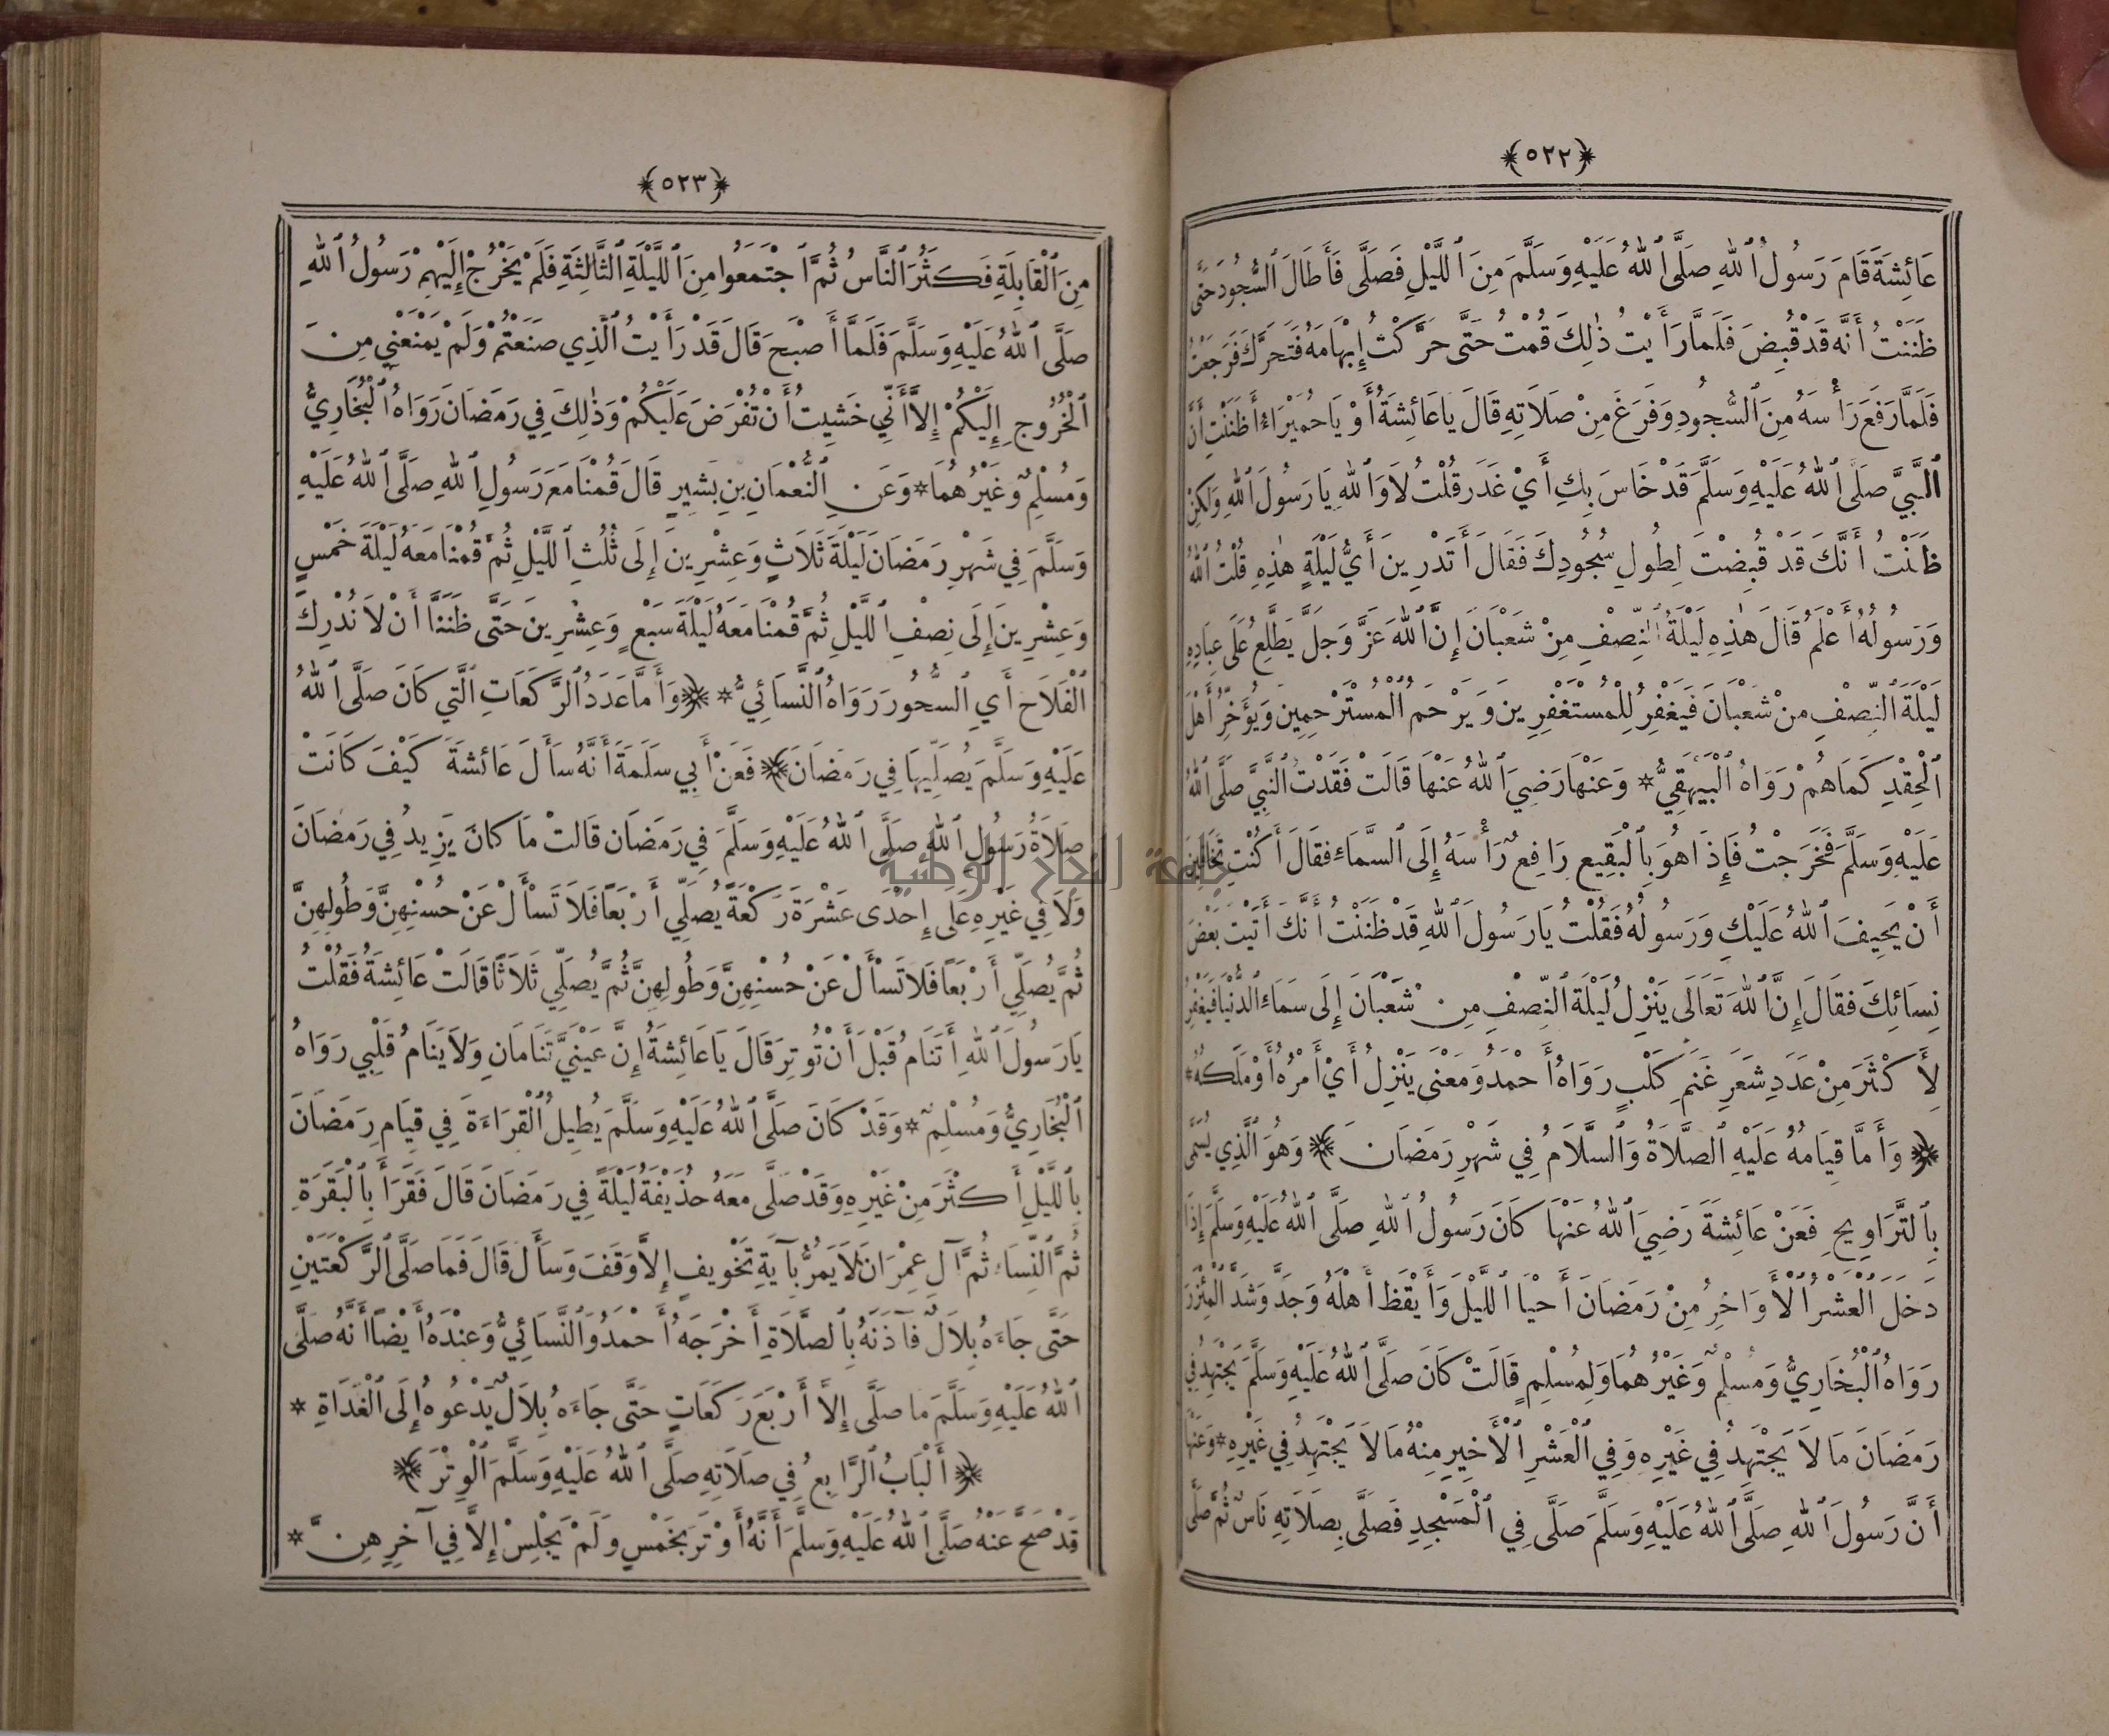 ﴿٥٢٢﴾
عَائِشَةَ قَامَ رَسُولُ ٱللهِ صَلَّى ٱللهُ عَلَيْهِ وَسَلَّمَ مِنَ ٱللَّيْلِ فَصَلَّى فَأَطَالَ ٱلسُّجُودَ حَتَّى
ظَنَنْتُ أَنَّهُ قَدْ قُبِضَ فَلَمَّا رَأَيْتُ ذٰلِكَ قُمْتُ حَتَّى حَرَّكْتُ إِبْهَامَهُ فَتَحَرَّكَ فَرَجَعْتُ
فَلَمَّا رَفَعَ رَأْسَهُ مِنَ ٱلسُّجُودِ وَفَرَغَ مِنْ صَلَاتِهِ قَالَ يَا عَائِشَةُ أَوْ يَا حُمَيْرَاءُ أَظَنَنْتِ أَنَّ
ٱلنَّبِيَّ صَلَّى ٱللهُ عَلَيْهِ وَسَلَّمَ قَدْ خَاسَ بِكِ أَيْ غَدَرَ قُلْتُ لَا وَٱللهِ يَا رَسُولَ ٱللهِ وَلَكِنْ
ظَنَنْتُ أَنَّكَ قَدْ قُبِضْتَ لِطُولِ سُجُودِكَ فَقَالَ أَتَدْرِينَ أَيُّ لَيْلَةٍ هٰذِهِ قُلْتُ ٱللهُ
وَرَسُولُهُ أَعْلَمُ قَالَ هٰذِهِ لَيْلَةُ ٱلنِّصْفِ مِنْ شَعْبَانَ إِنَّ ٱللهَ عَزَّ وَجَلَّ يَطَّلِعُ عَلَى عِبَادِهِ
لَيْلَةَ ٱلنِّصْفِ مِنْ شَعْبَانَ فَيَغْفِرُ لِلْمُسْتَغْفِرِينَ وَيَرْحَمُ ٱلْمُسْتَرْحِمِينَ وَيُؤَخِّرُ أَهْلَ
ٱلْحِقْدِ كَمَا هُمْ رَوَاهُ ٱلْبَيْهَقِيُّ * وَعَنْهَا رَضِيَ ٱللهُ عَنْهَا قَالَتْ فَقَدْتُ ٱلنَّبِيَّ صَلَّى ٱللهُ
عَلَيْهِ وَسَلَّمَ فَخَرَجْتُ فَإِذَا هُوَ بِٱلْبَقِيعِ رَافِعٌ رَأْسَهُ إِلَى ٱلسَّمَاءِ فَقَالَ أَكُنْتِ تَخَافِينَ
أَنْ يَحِيفَ ٱللهُ عَلَيْكِ وَرَسُولُهُ فَقُلْتُ يَا رَسُولَ ٱللهِ قَدْ ظَنَنْتُ أَنَّكَ أَتَيْتَ بَعْضَ
نِسَائِكَ فَقَالَ إِنَّ ٱللهَ تَعَالَى يَنْزِلُ لَيْلَةَ ٱلنِّصْفِ مِنْ شَعْبَانَ إِلَى سَمَاءِ ٱلدُّنْيَا فَيَغْفِرُ
لِأَكْثَرَ مِنْ عَدَدِ شَعَرِ غَنَمِ كَلْبٍ رَوَاهُ أَحْمَدُ وَمَعْنَى يَنْزِلُ أَيْ أَمْرُهُ أَوْ مَلَكُهُ *
﴿ وَأَمَّا قِيَامُهُ عَلَيْهِ ٱلصَّلَاةُ وَٱلسَّلَامُ فِي شَهْرِ رَمَضَانَ ﴾ وَهُوَ ٱلَّذِي يُسَمَّى
بِٱلتَّرَاوِيحِ فَعَنْ عَائِشَةَ رَضِيَ ٱللهُ عَنْهَا كَانَ رَسُولُ ٱللهِ صَلَّى ٱللهُ عَلَيْهِ وَسَلَّمَ إِذَا
دَخَلَ ٱلْعَشْرُ ٱلْأَوَاخِرُ مِنْ رَمَضَانَ أَحْيَا ٱللَّيْلَ وَأَيْقَظَ أَهْلَهُ وَجَدَّ وَشَدَّ ٱلْمِئْزَرَ
رَوَاهُ ٱلْبُخَارِيُّ وَمُسْلِمٌ وَغَيْرُهُمَا وَلِمُسْلِمٍ قَالَتْ كَانَ صَلَّى ٱللهُ عَلَيْهِ وَسَلَّمَ يَجْتَهِدُ فِي
رَمَضَانَ مَا لَا يَجْتَهِدُ فِي غَيْرِهِ وَفِي ٱلْعَشْرِ ٱلْأَخِيرِ مِنْهُ مَا لَا يَجْتَهِدُ فِي غَيْرِهِ * وَعَنْهَا
أَنَّ رَسُولَ ٱللهِ صَلَّى ٱللهُ عَلَيْهِ وَسَلَّمَ صَلَّى فِي ٱلْمَسْجِدِ فَصَلَّى بِصَلَاتِهِ نَاسٌ ثُمَّ صَلَّى
﴿٥٢٣﴾
مِنَ ٱلْقَابِلَةِ فَكَثُرَ ٱلنَّاسُ ثُمَّ ٱجْتَمَعُوا مِنَ ٱللَّيْلَةِ ٱلثَّالِثَةِ فَلَمْ يَخْرُجْ إِلَيْهِمْ رَسُولُ ٱللهِ
صَلَّى ٱللهُ عَلَيْهِ وَسَلَّمَ فَلَمَّا أَصْبَحَ قَالَ قَدْ رَأَيْتُ ٱلَّذِي صَنَعْتُمْ وَلَمْ يَمْنَعْنِي مِنَ
ٱلْخُرُوجِ إِلَيْكُمْ إِلَّا أَنِّي خَشِيتُ أَنْ تُفْرَضَ عَلَيْكُمْ وَذٰلِكَ فِي رَمَضَانَ رَوَاهُ ٱلْبُخَارِيُّ
وَمُسْلِمٌ وَغَيْرُهُمَا * وَعَنِ ٱلنُّعْمَانِ بْنِ بَشِيرٍ قَالَ قُمْنَا مَعَ رَسُولِ ٱللهِ صَلَّى ٱللهُ عَلَيْهِ
وَسَلَّمَ فِي شَهْرِ رَمَضَانَ لَيْلَةَ ثَلَاثٍ وَعِشْرِينَ إِلَى ثُلُثِ ٱللَّيْلِ ثُمَّ قُمْنَا مَعَهُ لَيْلَةَ خَمْسٍ
وَعِشْرِينَ إِلَى نِصْفِ ٱللَّيْلِ ثُمَّ قُمْنَا مَعَهُ لَيْلَةَ سَبْعٍ وَعِشْرِينَ حَتَّى ظَنَنَّا أَنْ لَا نُدْرِكَ
ٱلْفَلَاحَ أَيِ ٱلسُّحُورَ رَوَاهُ ٱلنَّسَائِيُّ * ﴿ وَأَمَّا عَدَدُ ٱلرَّكَعَاتِ ٱلَّتِي كَانَ صَلَّى ٱللهُ
عَلَيْهِ وَسَلَّمَ يُصَلِّيهَا فِي رَمَضَانَ ﴾ فَعَنْ أَبِي سَلَمَةَ أَنَّهُ سَأَلَ عَائِشَةَ كَيْفَ كَانَتْ
صَلَاةُ رَسُولِ ٱللهِ صَلَّى ٱللهُ عَلَيْهِ وَسَلَّمَ فِي رَمَضَانَ قَالَتْ مَا كَانَ يَزِيدُ فِي رَمَضَانَ
وَلَا فِي غَيْرِهِ عَلَى إِحْدَى عَشْرَةَ رَكْعَةً يُصَلِّي أَرْبَعًا فَلَا تَسْأَلْ عَنْ حُسْنِهِنَّ وَطُولِهِنَّ
ثُمَّ يُصَلِّي أَرْبَعًا فَلَا تَسْأَلْ عَنْ حُسْنِهِنَّ وَطُولِهِنَّ ثُمَّ يُصَلِّي ثَلَاثًا قَالَتْ عَائِشَةُ فَقُلْتُ
يَا رَسُولَ ٱللهِ أَتَنَامُ قَبْلَ أَنْ تُوتِرَ قَالَ يَا عَائِشَةُ إِنَّ عَيْنَيَّ تَنَامَانِ وَلَا يَنَامُ قَلْبِي رَوَاهُ
ٱلْبُخَارِيُّ وَمُسْلِمٌ * وَقَدْ كَانَ صَلَّى ٱللهُ عَلَيْهِ وَسَلَّمَ يُطِيلُ ٱلْقِرَاءَةَ فِي قِيَامِ رَمَضَانَ
بِٱللَّيْلِ أَكْثَرَ مِنْ غَيْرِهِ وَقَدْ صَلَّى مَعَهُ حُذَيْفَةُ لَيْلَةً فِي رَمَضَانَ قَالَ فَقَرَأَ بِٱلْبَقَرَةِ
ثُمَّ ٱلنِّسَاءِ ثُمَّ آلِ عِمْرَانَ لَا يَمُرُّ بِآيَةِ تَخْوِيفٍ إِلَّا وَقَفَ وَسَأَلَ قَالَ فَمَا صَلَّى ٱلرَّكْعَتَيْنِ
حَتَّى جَاءَهُ بِلَالٌ فَآذَنَهُ بِٱلصَّلَاةِ أَخْرَجَهُ أَحْمَدُ وَٱلنَّسَائِيُّ وَعِنْدَهُ أَيْضًا أَنَّهُ صَلَّى
ٱللهُ عَلَيْهِ وَسَلَّمَ مَا صَلَّى إِلَّا أَرْبَعَ رَكَعَاتٍ حَتَّى جَاءَهُ بِلَالٌ يَدْعُوهُ إِلَى ٱلْغَدَاةِ *
﴿ أَلْبَابُ ٱلرَّابِعُ فِي صَلَاتِهِ صَلَّى ٱللهُ عَلَيْهِ وَسَلَّمَ ٱلْوِتْرَ ﴾
قَدْ صَحَّ عَنْهُ صَلَّى ٱللهُ عَلَيْهِ وَسَلَّمَ أَنَّهُ أَوْتَرَ بِخَمْسٍ وَلَمْ يَجْلِسْ إِلَّا فِي آخِرِهِنَّ *
جامعة النجاح الوطنية